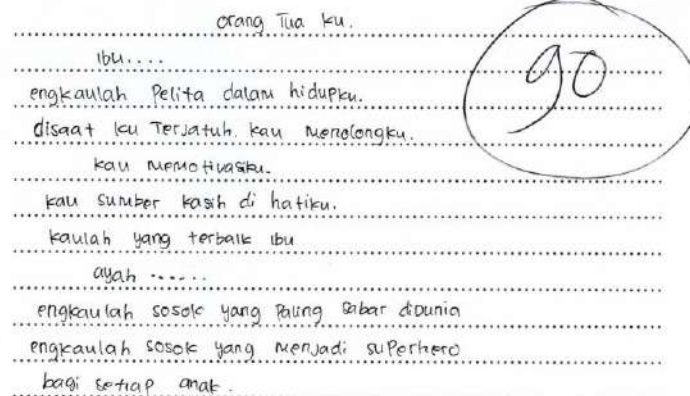 orang Tua ku.
90
ibu....
engkaulah Pelita dalam hidupku.
disaat ku Terjatuh. kau menolongku.
kau memotivasiku.
kau sumber kasih di hatiku.
kaulah yang terbaik ibu
ayah ......
engkaulah sosok yang Paling sabar didunia
engkaulah sosok yang menjadi superhero
bagi setiap anak.